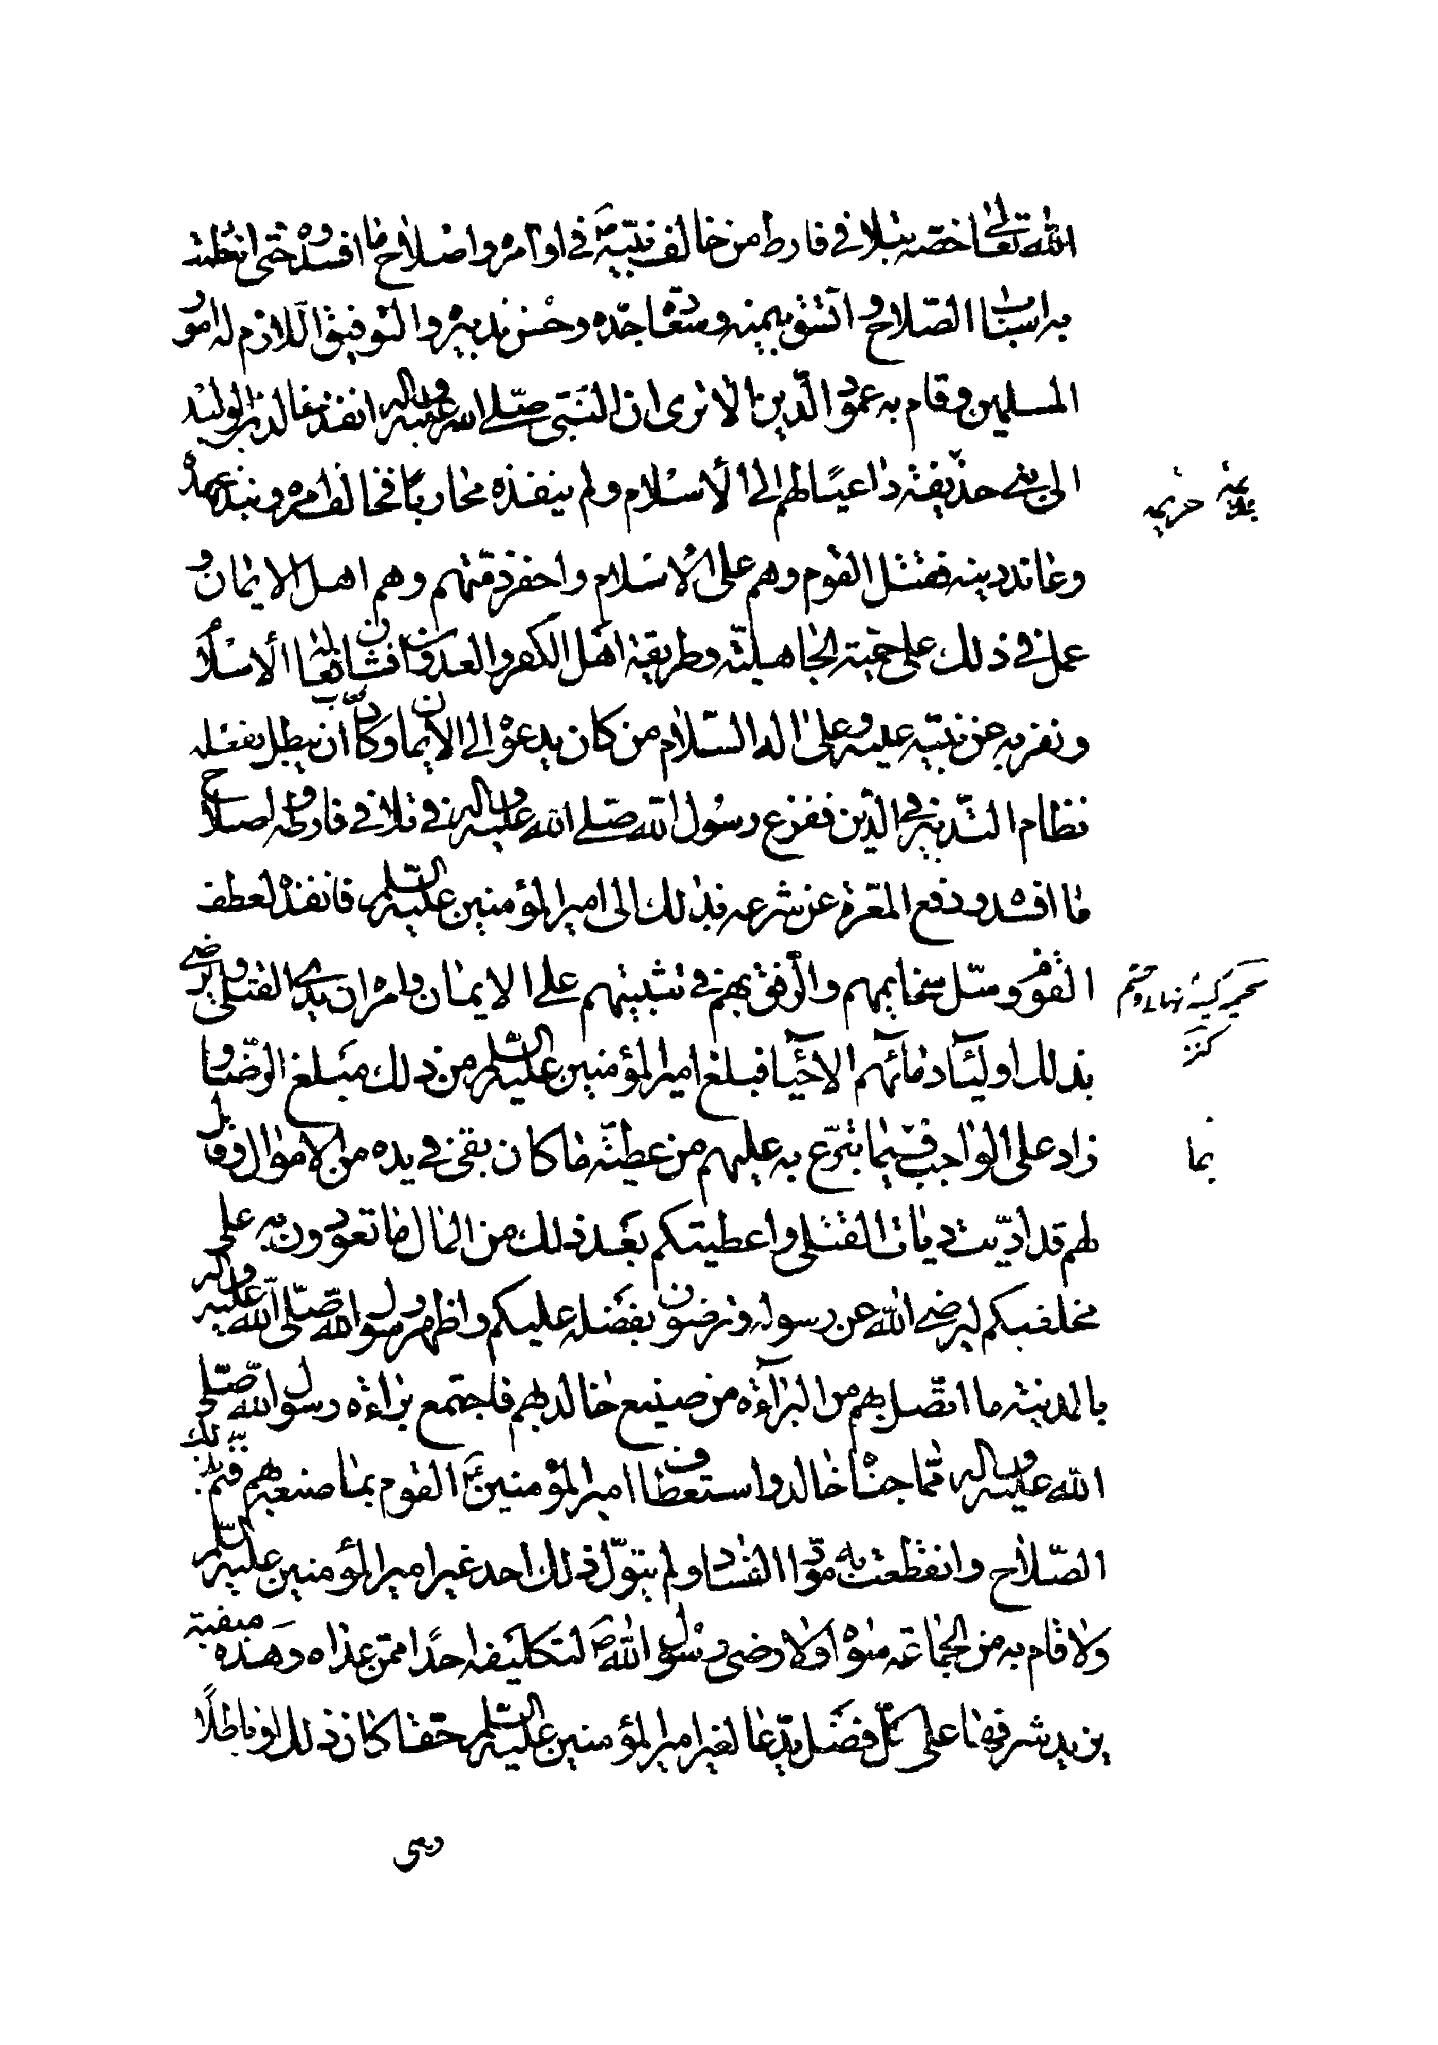 الله تعالى خصه بتلافي فارط من خالف نبيه ص في اوامره واصلاح ما افسدوه حتى انتظمت
به اسباب الصلاح واتسق بيمنه وسعادة جده وحسن تدبيره والتوفيق اللازم له امور
المسلمين وقام به عمود الدين الا ترى ان النبى صلى الله عليه واله انفذ خالد بن الوليد
الى بني حذيفة داعيا لهم الى الاسلام ولم ينفذه محاربا فخالف امره ونبذ عهده
وعاند دينه فقتل القوم وهم على الاسلام واخفر ذمتهم وهم اهل الايمان و
عمل في ذلك على حمية الجاهلية وطريقة اهل الكفر والعدوان فشان فعاله الاسلام
ونفر به عن نبيه عليه وعلى اله السلام من كان يدعوه الى الايمان وكاد ان يبطل بفعله
نظام التدبير في الدين ففزع رسول الله صلى الله عليه واله في تلافي فارطه واصلاح
ما افسده ودفع المعرة عن شرعه بذلك الى امير المؤمنين عليه السلم فانفذه لعطف
القوم وسل سخايمهم والرفق بهم في تثبيتهم على الايمان وامره ان يدى القتلى ويرضي
بذلك اولياء دمائهم الاحياء فبلغ امير المؤمنين عليه السلم من ذلك مبلغ الرضا و
زاد على الواجب فيما تبرع به عليهم من عطية ما كان بقي في يده من الاموال وقال
لهم قد اديت ديات القتلى واعطيتكم بعد ذلك من المال ما تعودون به على
مخلفيكم ليرضي الله عن رسوله وترضون بفضله عليكم واظهر رسول الله صلى الله عليه واله
بالمدينة ما اتصل بهم من البرآءة من صنيع خالد بهم فاجتمع براءة رسول الله صلى
الله عليه واله مما جناه خالد واستعطاف امير المؤمنين ع القوم بما صنعه بهم فتم بذلك
الصلاح وانقطعت به مواد الفساد ولم يتول ذلك احد غير امير المؤمنين عليه السلم
ولا قام به من الجماعة سواه ولا رضي رسول الله ص لتكليفه احدا ممن عداه وهذه منقبة
يزيد شرفها على كل فضل يدعا لغير امير المؤمنين عليه السلم حقا كان ذلك او باطلا
خزيمه
بما
وهي